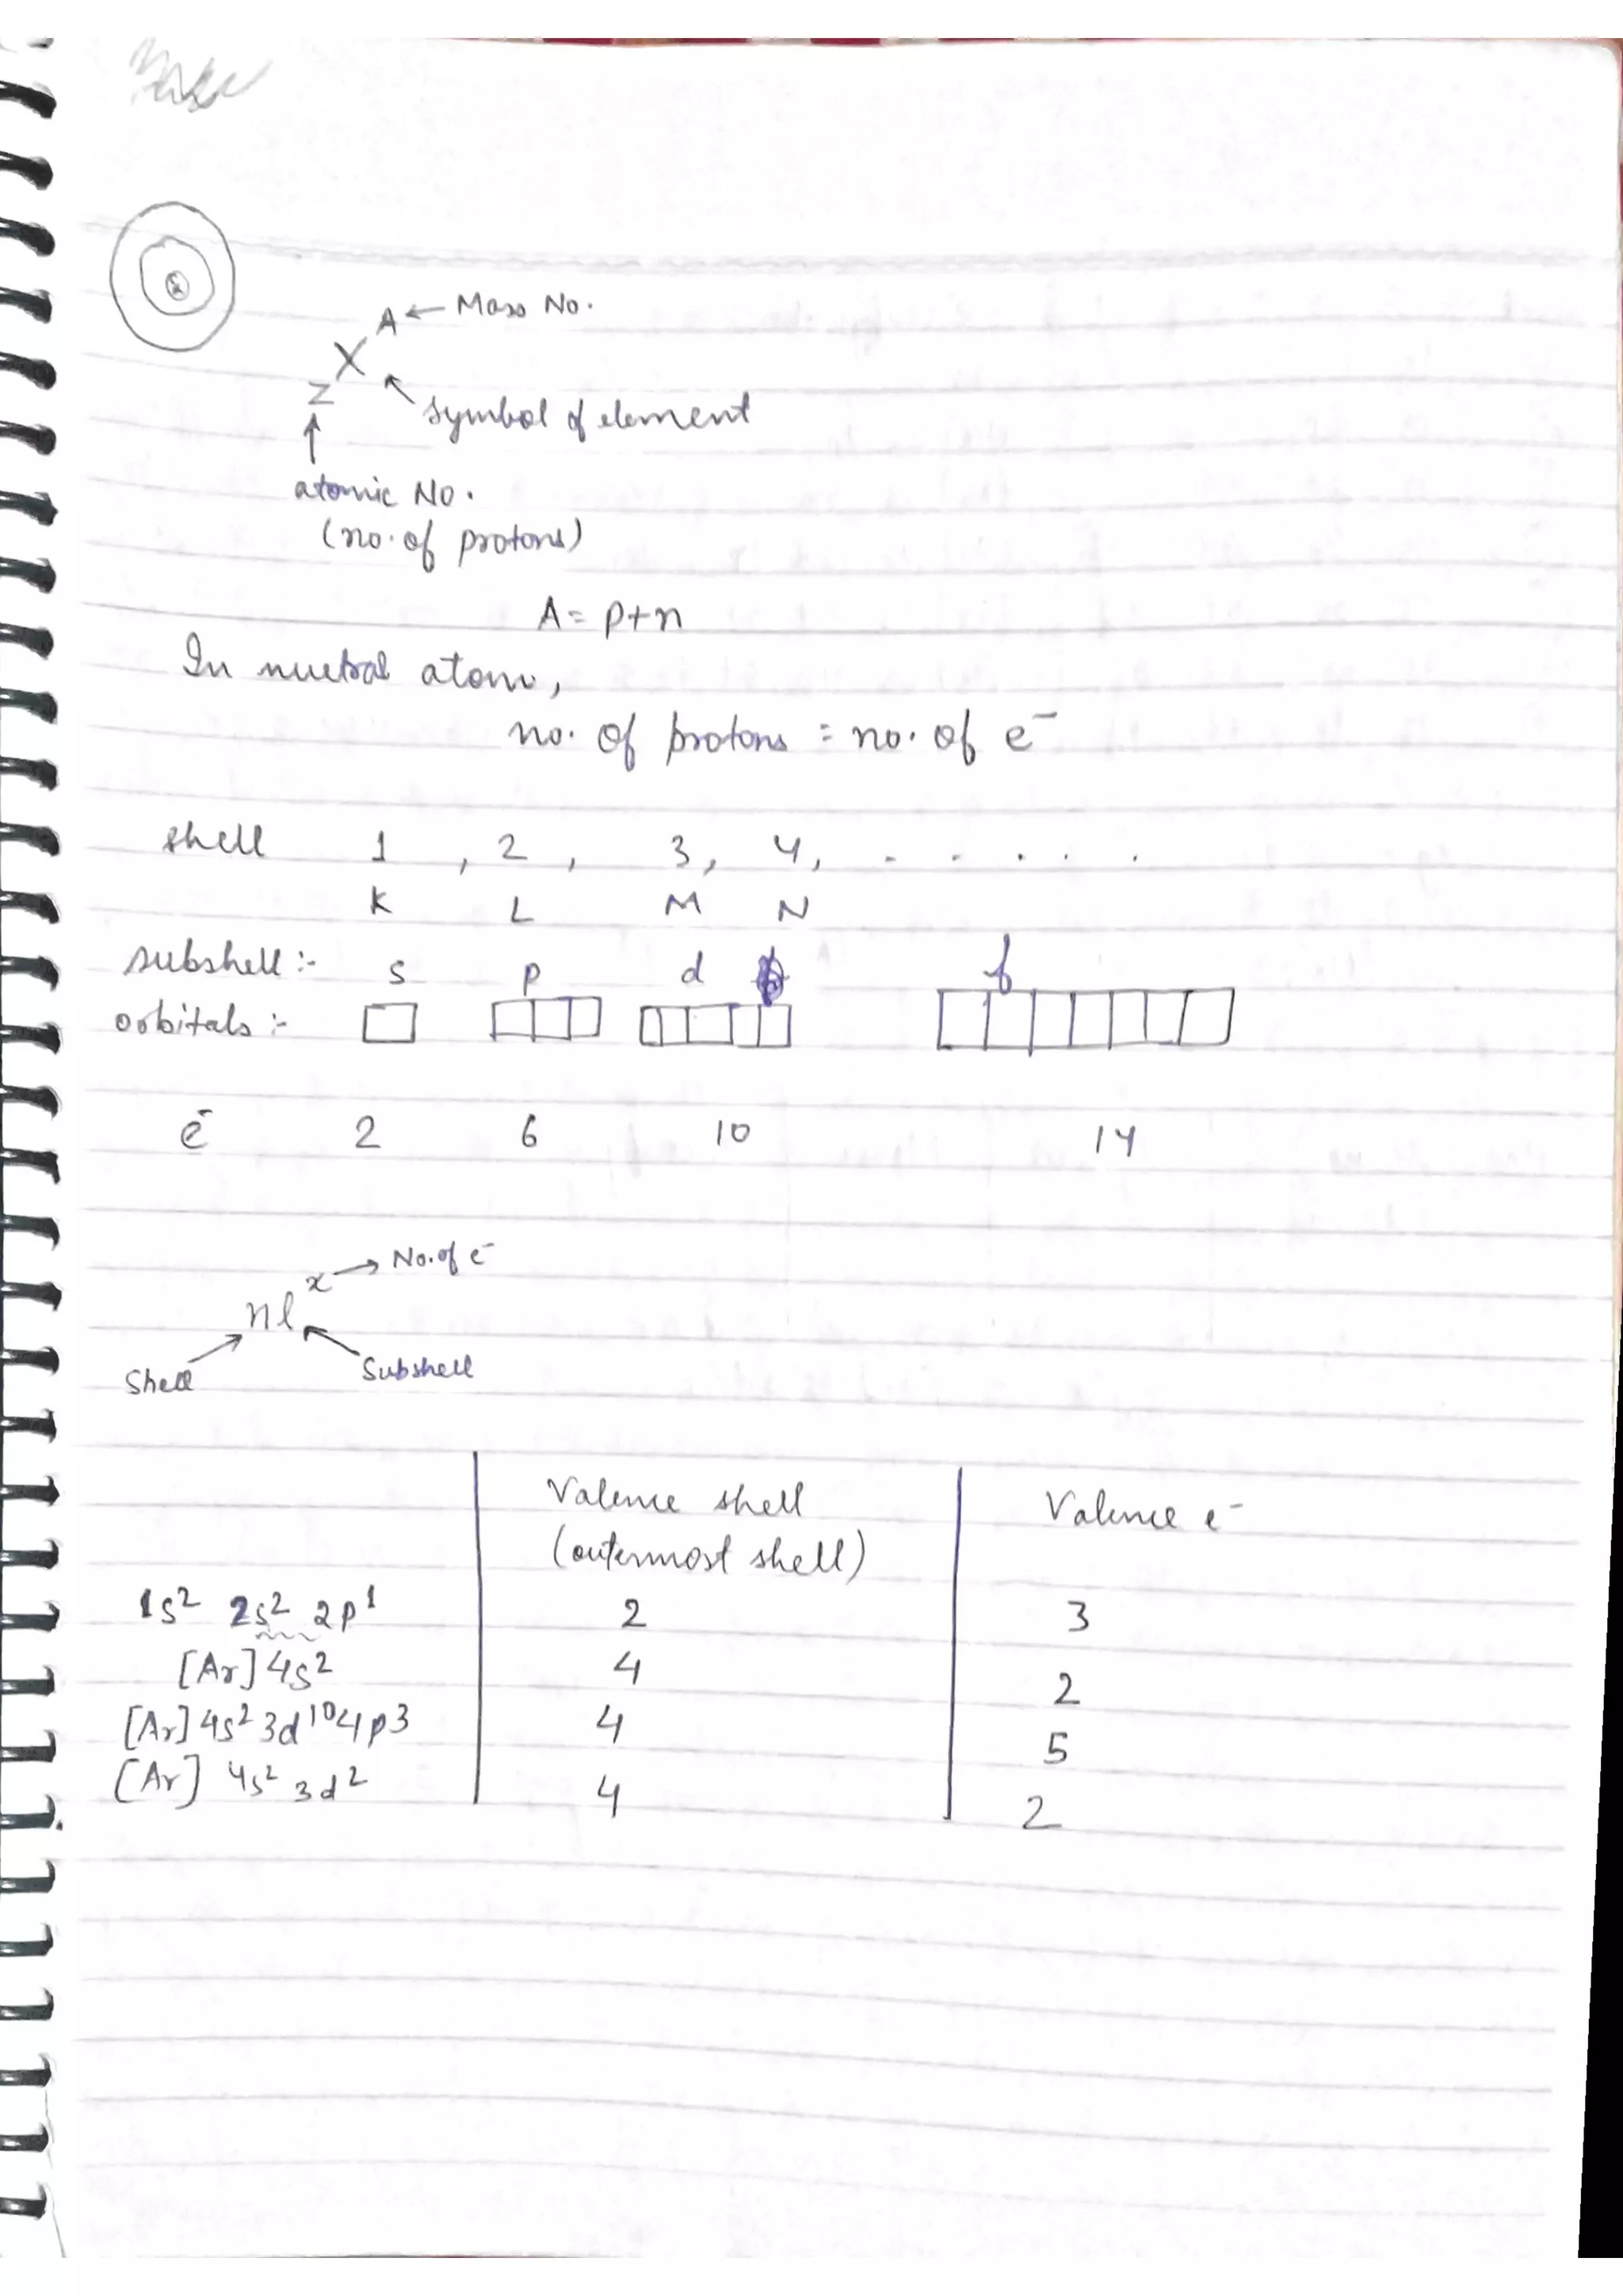 A ← Mass No.
X
Z
symbol of element
↑
atomic No.
(no. of protons)
A = p+n
In nuetral atom,
no. of protons = no. of e⁻
shell 1 , 2 , 3 , 4 , - - . . .
K L M N
subshell :- s p d f
orbitals :-
e⁻ 2 6 10 14
x → No. of e⁻
nl
Shell Subshell
Valence shell Valence e⁻
(outermost shell)
1s² 2s² 2p¹ 2 3
[Ar] 4s² 4 2
[Ar] 4s² 3d¹⁰ 4p³ 4 5
[Ar] 4s² 3d² 4 2